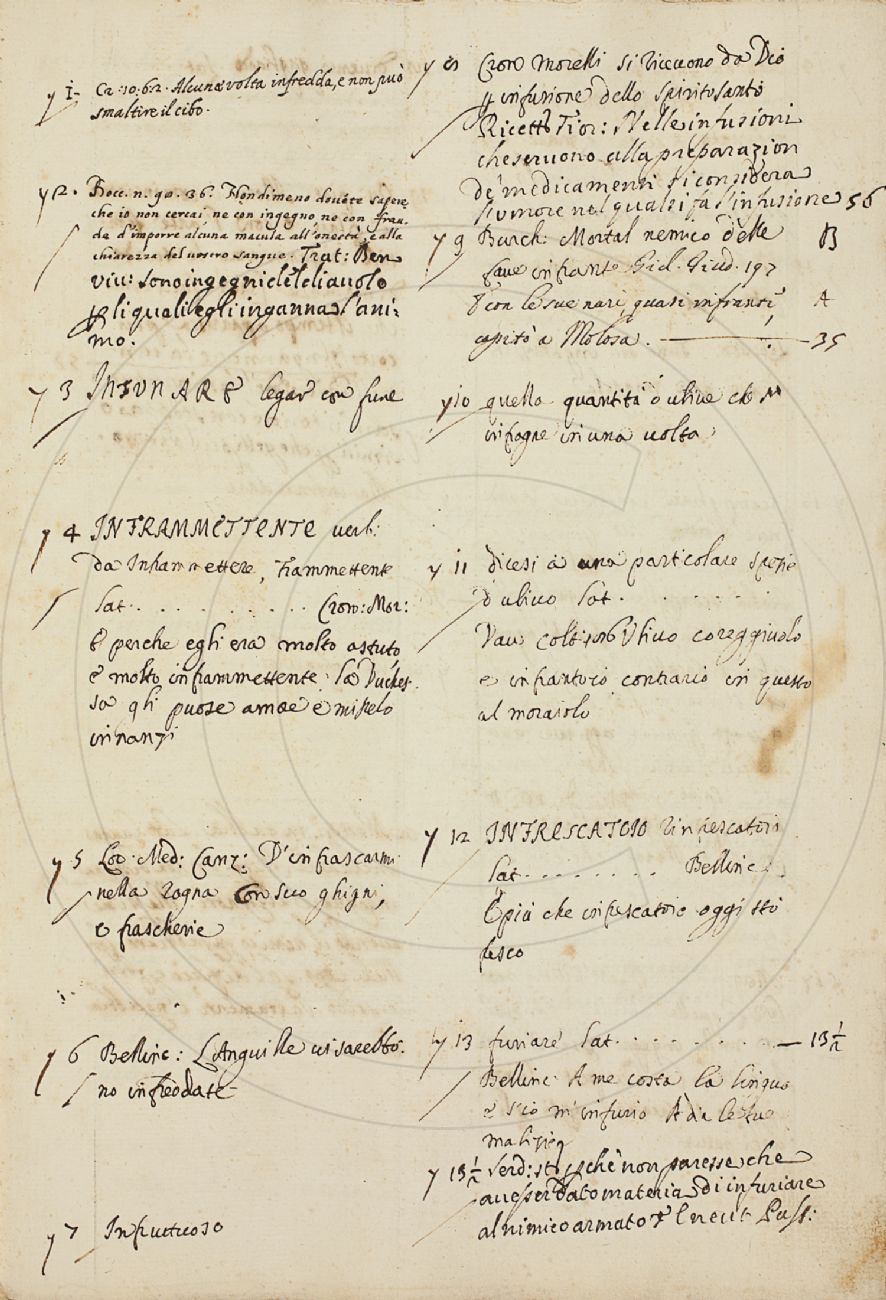 y 1- Cr. 10. 62. Alcuna volta infredda, e non può
smaltire il cibo.
y 2. Bocc. n. 90. 36. Nondimeno dovete sapere,
che io non cercai, ne con ingegno, ne con frau-
de d'imporre alcuna macula all'onestà, e alla
chiarezza del vostro sangue. Trat: Ben
viv: sono ingegni del diavolo
p li quali egli inganna l'ani:
mo.
y 3 INFUNARE legar con fune
y 4 INFRAMMETTENTE verb:
da Inframmettere, Frammettente
Lat. . . . . . . . . . Cron: Mor:
E perche egli era molto astuto
e molto inframmettente la Duches-
sa gli puose amore e miselo
innanzi
y 5 Lor. Med: Canz: D'infrascarmi
nella ragna con suo ghigni,
e frascherie
y 6 Bellinc: L'Anguille vi sarebbo.
no infreddate
y 7 Infruttuoso
y 8 Cron Morelli si ricevono da Dio
p infusione dello Spirito santo
Ricett: Fior: Nelle infusioni
che servono alla preparazion
de' medicamenti si considera
l'umore nel qual si fa l'infusione 56
y 9 Burch: Mortal nemico delle B
fave infrante Bid. Giud. 197
E con le sue nari quasi infranti A
capitò a Molosa. 35
y 10 quella quantità d'ulive che s'
infragne in una volta
y 11 dicesi a una particolare spezie
d'ulivo Lat. . . . . . .
Dav. Colt: 196 Ulivo coreggiuolo
e infrantoio contrario in questo
al moraiolo
y 12 INFRESCATOIO Rinfrescatoio
Lat. . . . . . . . . Bellinc:
E più che infrescatoio oggi sto
fresco
y 13 furiare Lat. . . . . . . . . 13 1/2
Bellinc. A me costa la lingua
e s'io m'infurio
y 13 1/2 Serd: st: p che non paresse che
avesser dato materia di infuriare
al nimico armato